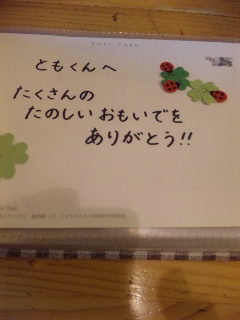 POST CARD
ともくんへ
たくさんの
たのしいおもいでを
ありがとう!!